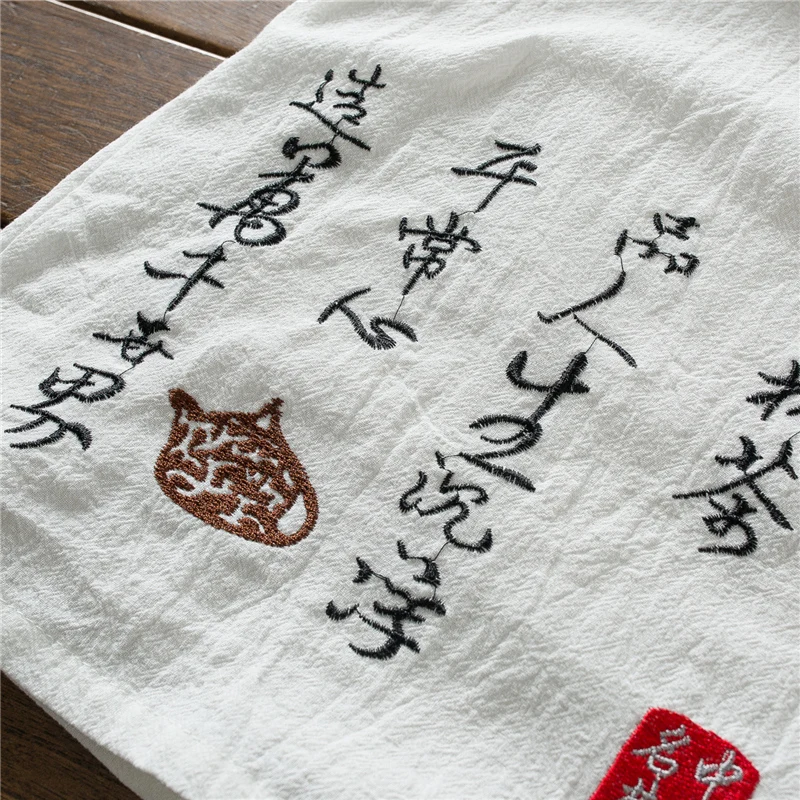 杯茶
品人生沉浮
平常心
造萬千世界
中
名